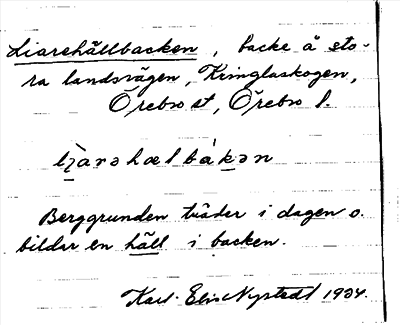 Liarehällbacken, backe å sto-
ra landsvägen, Kringlaskogen,
Örebro st, Örebro l.
Berggrunden träder i dagen o.
bildar en häll i backen.
Karl-Elis Nystedt 1934.